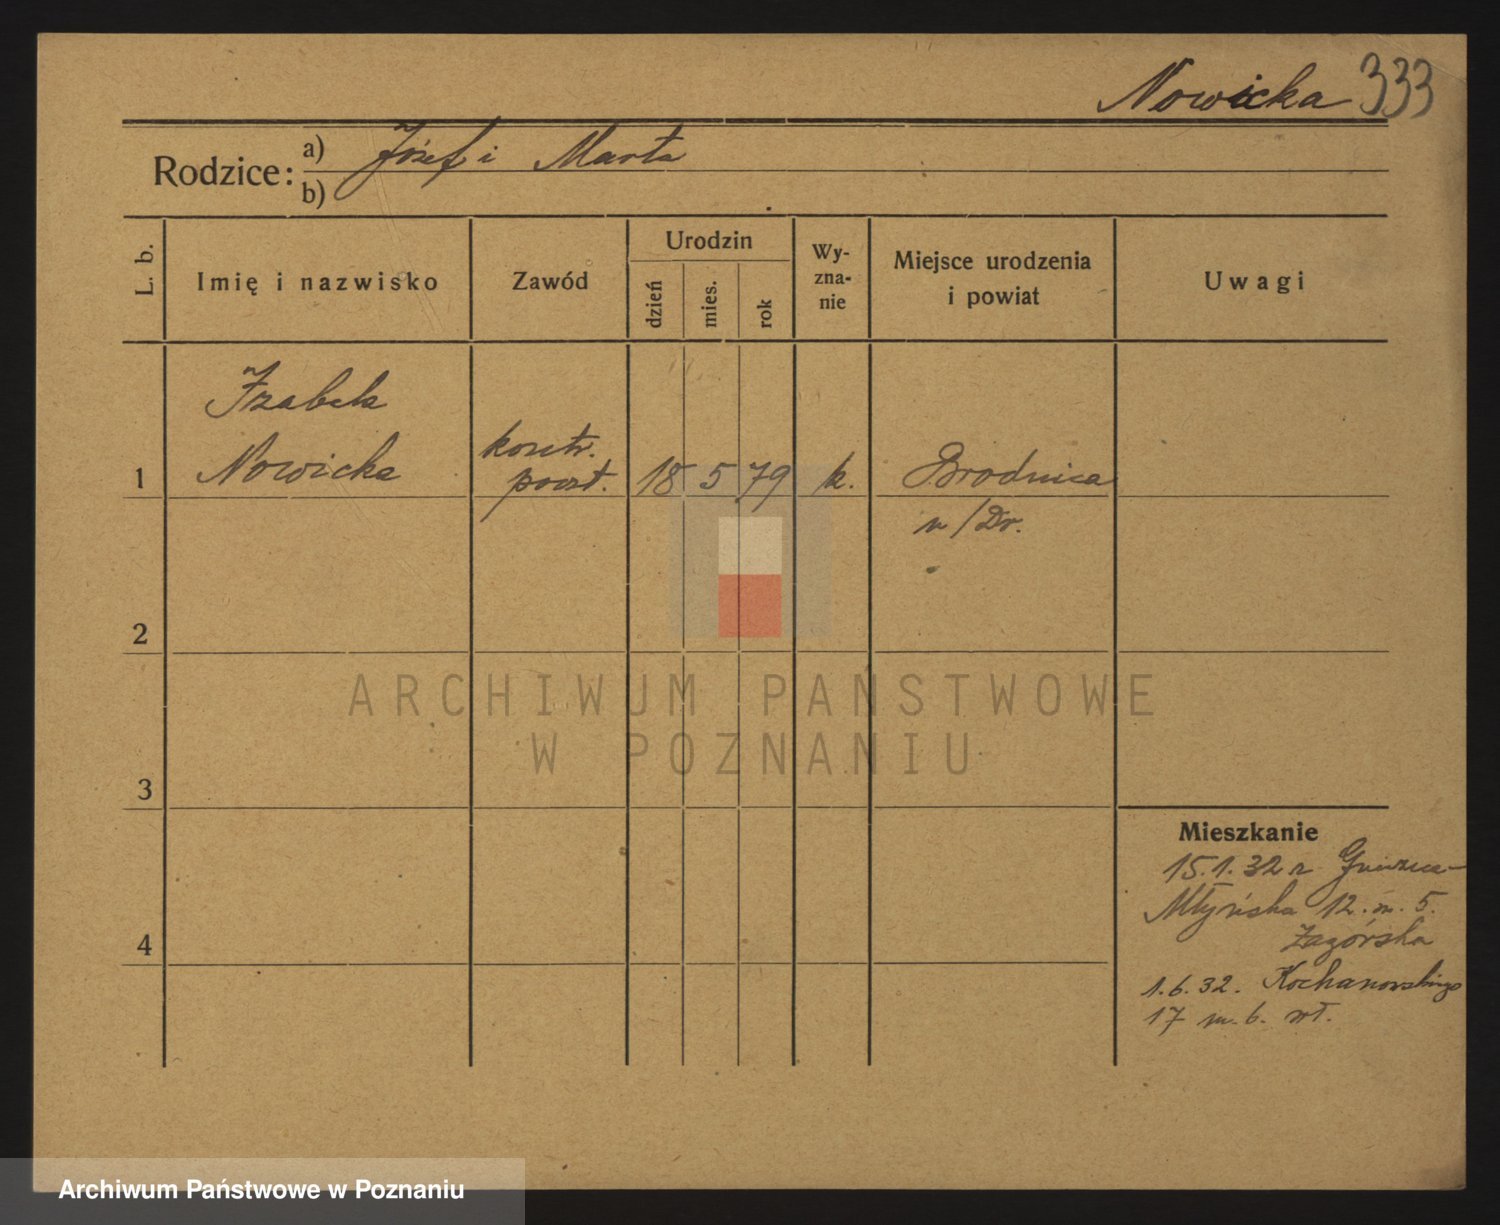 Nowicka 333
Rodzice: a) Józef i Marta
b)
L. b.
Imię i nazwisko
Zawód
Urodzin
dzień
mies.
rok
Wy-
zna-
nie
Miejsce urodzenia
i powiat
Uwagi
Izabela
Nowicka
kontr.
poczt.
1
18 5 79
k.
Brodnica
n/Dr.
2
3
4
Mieszkanie
15.1.32 z
Młyńska 12. m. 5.
Zagórska
1.6.32. Kochanowskiego
17 m. 6. wł.
ARCHIWUM PAŃSTWOWE
W POZNANIU
Archiwum Państwowe w Poznaniu